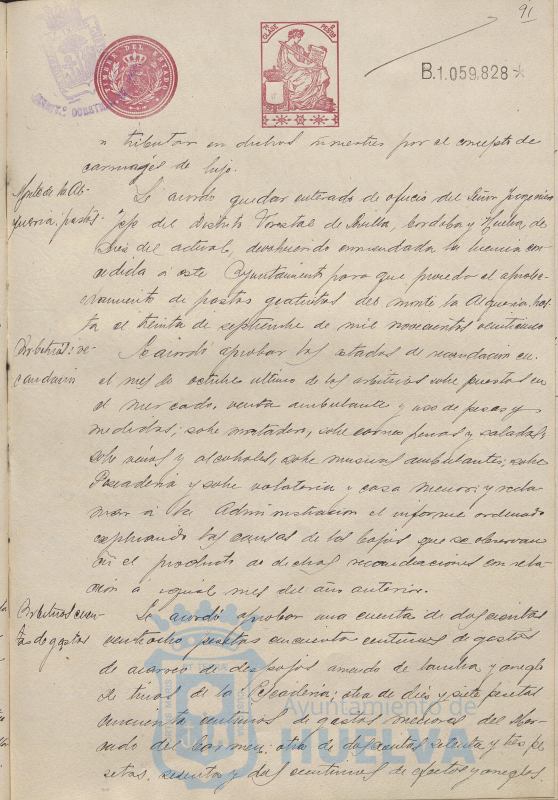 91
TIMBRE DEL ESTADO
CLASE
PESETAS
B.1.059.828 *
n tributar en dichos trimestres por el concepto de
carruages de lujo.
Monte de la Al-
queria: pastos
Se acordó quedar enterado de oficio del Señor Ingeniero
Jefe del Distrito Forestal de Sevilla, Cordoba y Huelva, de
del actual, devolviendo enmendada la licencia con-
cedida á este Ayuntamiento para que proceda al aprove-
chamiento de pastos gratuitos del monte La Alqueria has-
ta el treinta de septiembre de mil novecientos veinticinco
Arbitrios: re-
caudacion
Se acordó aprobar los estados de recaudacion en
el mes de octubre ultimo de los arbitrios sobre puestos en
el mercado, venta ambulante y uso de pesas y
medidas; sobre matadero, sobre carnes frescas y saladas,
sobre vinos y alcoholes, sobre musicas ambulantes; sobre
Pescaderia y sobre volateria y caza menor; y recla-
mar á la Administracion el informe ordenado
explicando las causas de las bajas que se observan
en el producto de dichas recaudaciones con rela-
cion á igual mes del año anterior.
Arbitrios: cuen-
tas de gastos
Se acordó aprobar una cuenta de doscientas
veintiocho pesetas cincuenta centimos de gastos
de acarreo de despojos, de y arreglo
de de la ; otra de diez y siete pesetas
cincuenta centimos de gastos menores del Mer-
cado del Carmen; otra de doscientas setenta y tres pe-
setas, sesenta y dos centimos de efectos y arreglos
Ayuntamiento de
HUELVA